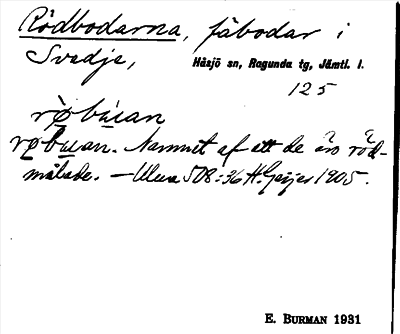 Rödbodarna, fäbodar i
Svedje, Håsjö sn, Ragunda tg, Jämtl. l.
125
rø̀bɯ́ian
rø̀bɯian. Namnet af att de äro röd-
målade. — Ulma 508:36 H. Geijer 1905.
E. BURMAN 1931